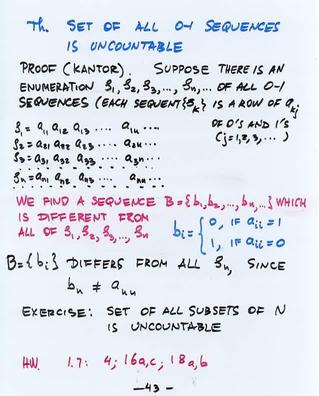 Th. SET OF ALL 0-1 SEQUENCES
IS UNCOUNTABLE
PROOF (KANTOR). SUPPOSE THERE IS AN
ENUMERATION S₁, S₂, S₃, ..., Sₙ, ... OF ALL 0-1
SEQUENCES (EACH SEQUENT {Sₖ} IS A ROW OF aₖⱼ
OF 0'S AND 1'S
(j=1,2,3, ... )
S₁ = a₁₁ a₁₂ a₁₃ ... a₁ₙ ...
S₂ = a₂₁ a₂₂ a₂₃ ... a₂ₙ ...
S₃ = a₃₁ a₃₂ a₃₃ ... a₃ₙ ...
Sₙ = aₙ₁ aₙ₂ aₙ₃ ... aₙₙ ...
WE FIND A SEQUENCE B = {b₁, b₂, ..., bₙ, ...} WHICH
IS DIFFERENT FROM
ALL OF S₁, S₂, S₃, ..., Sₙ
bᵢ = { 0, IF aᵢᵢ = 1
1, IF aᵢᵢ = 0
B = {bᵢ} DIFFERS FROM ALL Sₙ, SINCE
bₙ ≠ aₙₙ
EXERCISE: SET OF ALL SUBSETS OF N
IS UNCOUNTABLE
HW. 1.7: 4; 16a,c; 18a,b
—43—